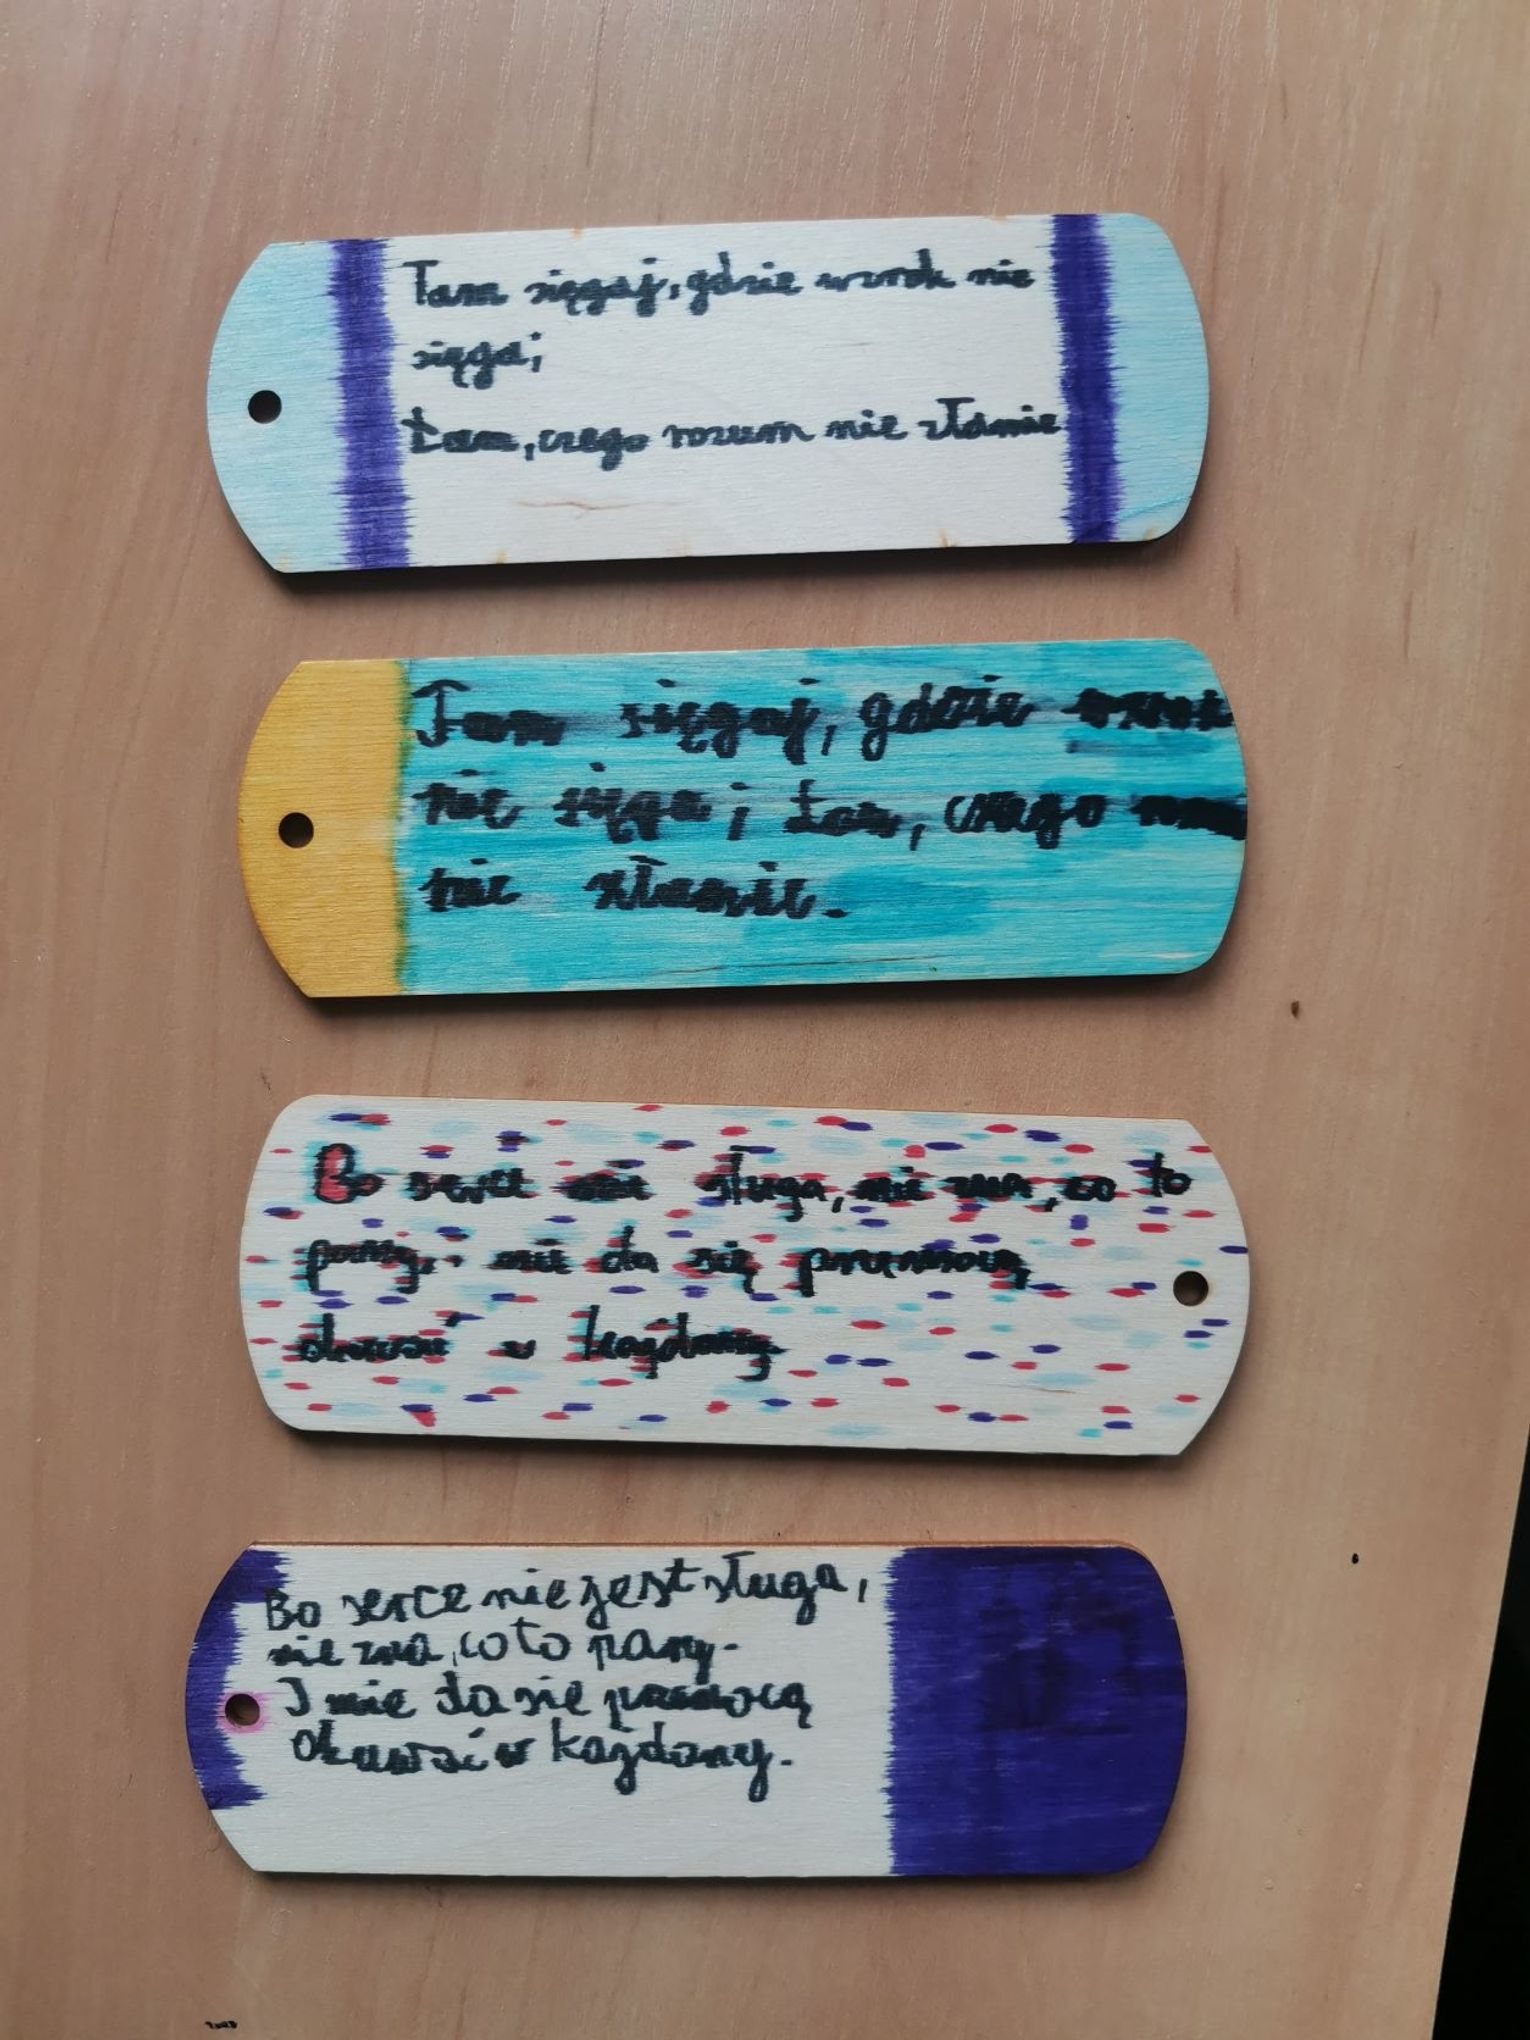 Tam sięgaj, gdzie wzrok nie
sięga;
Łam, czego rozum nie złamie
Tam sięgaj, gdzie wzrok
nie sięga; Łam, czego
nie złamie.
Bo serce nie sługa, nie zna, co to
pany, i nie da się przemocą
okuwać w kajdany
Bo serce nie jest sługa,
nie zna, co to pany-
I nie da się przemocą
Okuwać w kajdany.